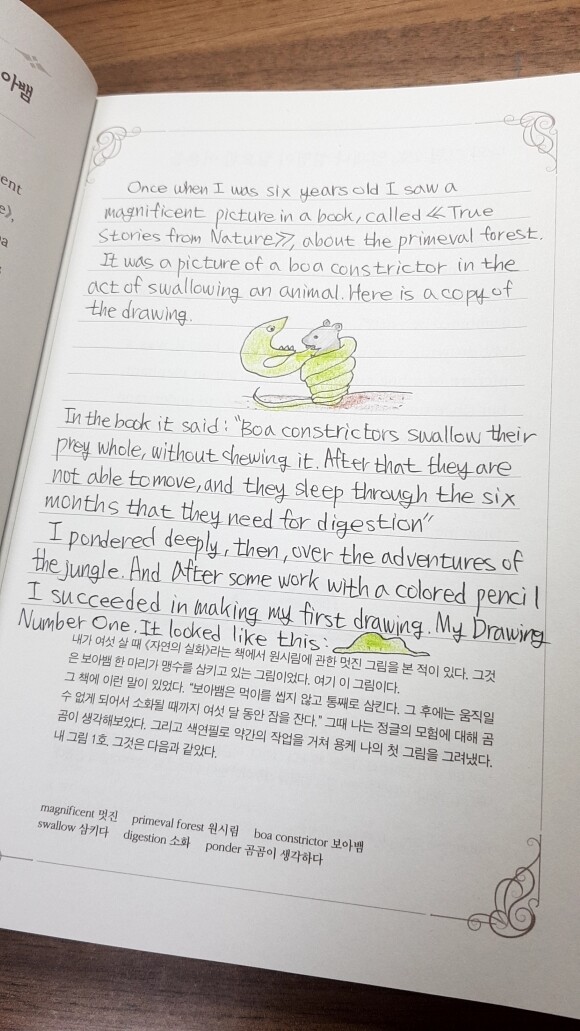 아뱀
ent
Once when I was six years old I saw a
magnificent picture in a book, called ≪True
Stories from Nature≫, about the primeval forest.
It was a picture of a boa constrictor in the
act of swallowing an animal. Here is a copy of
the drawing.
In the book it said: "Boa constrictors swallow their
prey whole, without chewing it. After that they are
not able to move, and they sleep through the six
months that they need for digestion"
I pondered deeply, then, over the adventures of
the jungle. And After some work with a colored pencil
I succeeded in making my first drawing. My Drawing
Number One. It looked like this:
내가 여섯 살 때 <자연의 실화>라는 책에서 원시림에 관한 멋진 그림을 본 적이 있다. 그것
은 보아뱀 한 마리가 맹수를 삼키고 있는 그림이었다. 여기 이 그림이다.
그 책에 이런 말이 있었다. "보아뱀은 먹이를 씹지 않고 통째로 삼킨다. 그 후에는 움직일
수 없게 되어서 소화될 때까지 여섯 달 동안 잠을 잔다." 그때 나는 정글의 모험에 대해 곰
곰이 생각해보았다. 그리고 색연필로 약간의 작업을 거쳐 용케 나의 첫 그림을 그려냈다.
내 그림 1호. 그것은 다음과 같았다.
magnificent 멋진 primeval forest 원시림 boa constrictor 보아뱀
swallow 삼키다 digestion 소화 ponder 곰곰이 생각하다